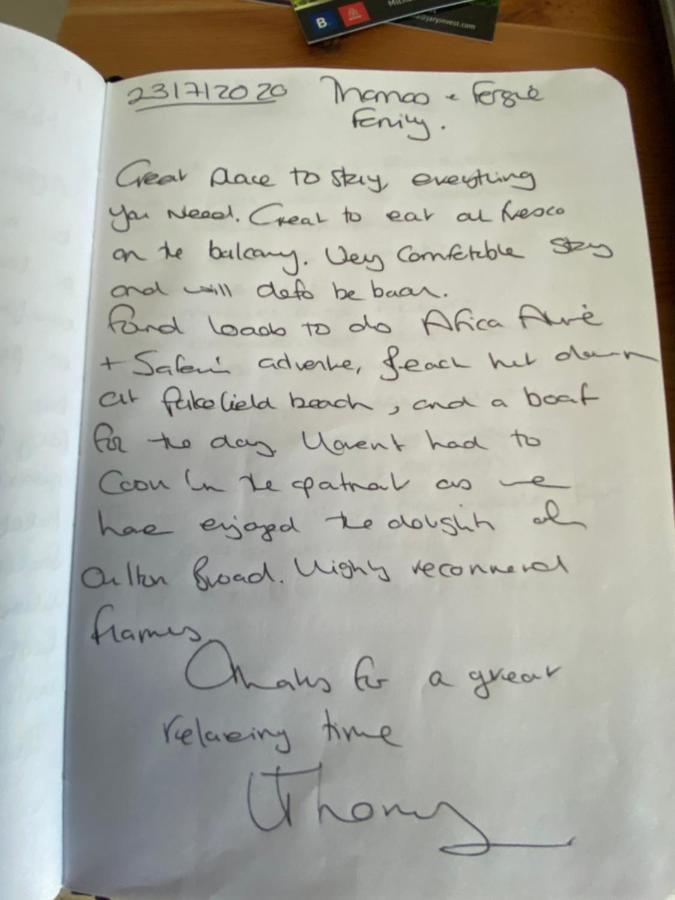 B.
@jarysinvest.com
23/7/2020 Thomas + Fergie
Family.
Great place to stay, everything
you need. Great to eat al fresco
on the balcony. Very comfetable stay
and will defo be back.
Found loads to do Africa Alive
+ Safari adventure, beach hut down
at Pakefield beach, and a boat
for the day. Havent had to
Cook in the apartment as we
have enjoyed the delights of
Oulton Broad. Highly recommend
flames.
Thanks for a great
relaxing time